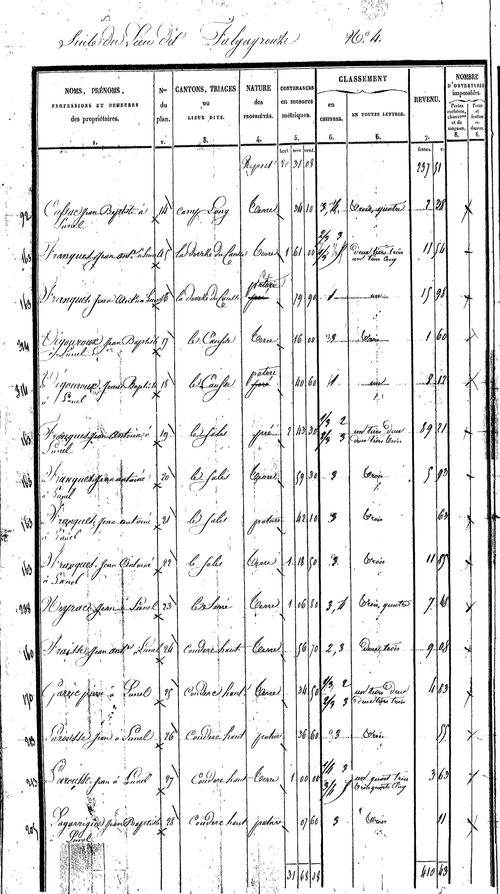 Suite du Lieu dit Falgayrouse No. 4.
NOMS, PRÉNOMS, PROFESSIONS ET DEMEURES des propriétaires. 1.
Nos du plan. 2.
CANTONS, TRIAGES ou LIEUX DITS. 3.
NATURE des PROPRIÉTÉS. 4.
CONTENANCES en mesures métriques. 5.
CLASSEMENT
en CHIFFRES. 6.
EN TOUTES LETTRES. 6.
REVENU. 7.
NOMBRE D'OUVERTURES imposables.
hect. francs. c.
Report 20 31 08 237 51
92 Cussac jean Baptiste à Lunel 14 camp Long Terre 34 10 3, 4 Trois, quatre 2 38
163 Franquet jean ant. à Lunel 15 la devèze del Causse Terre 1 61 00 deux tiers trois un tiers cinq 11 54
163 Franquet jean ant. à Lunel 16 la devèze del Causse pature 79 90 1 un 15 98
314 Vigouroux jean Baptiste à Lunel 17 le Causse Terre 16 00 3 Trois 1 60
314 Vigouroux jean Baptiste à Lunel 18 le Causse pature 40 60 1 un 8 12
163 Franquet jean antoine à Lunel 19 le salès pré 2 43 30 1/3 2 2/3 3 un tiers deux deux tiers trois 89 21
163 Franquet jean antoine à Lunel 20 le salès Terre 59 30 3 Trois 5 93
163 Franquet jean antoine à Lunel 21 le salès pature 42 10 3 Trois 63
163 Franquet jean antoine à Lunel 22 le salès Terre 1 18 50 3 Trois 11 85
Meyrac jean à Lunel 23 Terre 1 06 80 3, 4 Trois, quatre 7 48
160 Fraisse jean ant. à Lunel 24 couderc haut Terre 56 70 2, 3 deux trois 9 08
170 Garric à Lunel 25 Couderc haut Terre 34 50 1/3 2 2/3 3 un tiers deux deux tiers trois 4 83
213 Larousse jean à Lunel 26 Couderc haut pature 36 60 3 Trois 55
213 Larousse jean à Lunel 27 Couderc haut Terre 1 00 00 1/4 3 3/4 un quart trois trois quarts 3 63
203 Lagarrigue jean Baptiste Lunel 28 Couderc haut pature 07 60 3 Trois 11
31 68 08 410 43